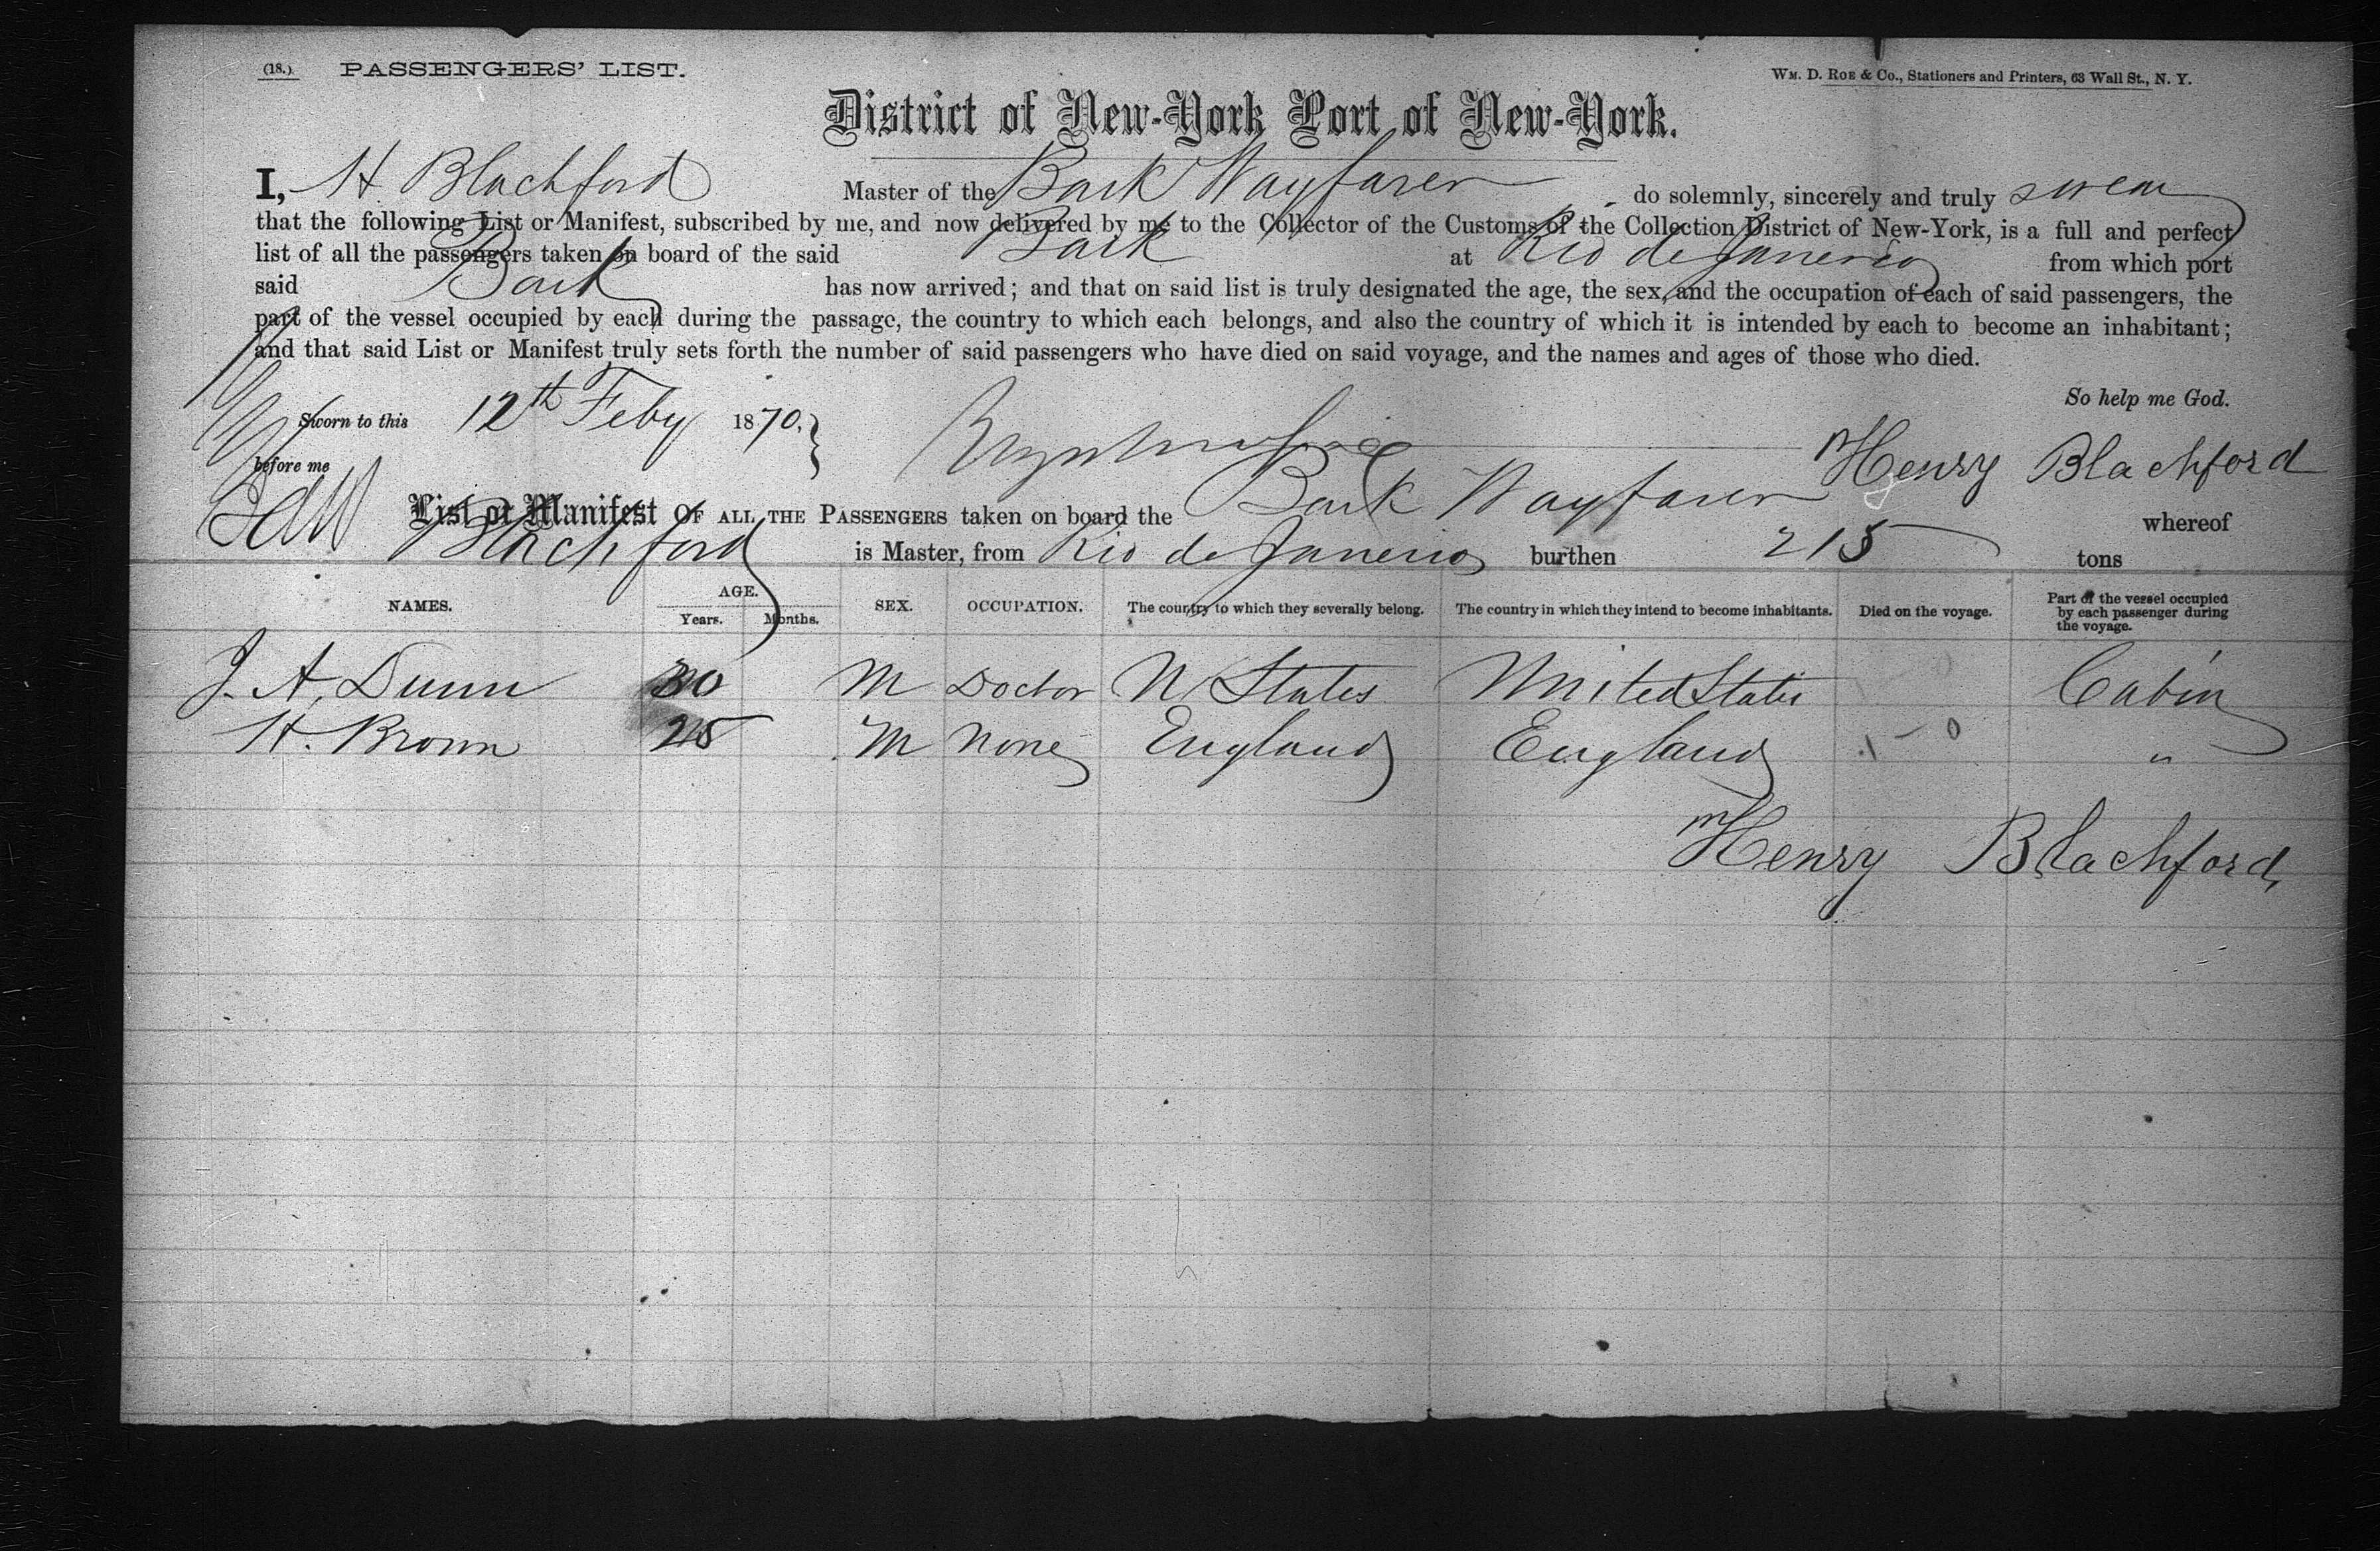 (18.) PASSENGERS' LIST.
WM. D. ROE & Co., Stationers and Printers, 63 Wall St., N. Y.
District of New-York Port of New-York.
I, H. Blachford Master of the Bark Wayfarer do solemnly, sincerely and truly swear
that the following List or Manifest, subscribed by me, and now delivered by me to the Collector of the Customs of the Collection District of New-York, is a full and perfect
list of all the passengers taken on board of the said Bark at Rio de Janerio from which port
said Bark has now arrived; and that on said list is truly designated the age, the sex, and the occupation of each of said passengers, the
part of the vessel occupied by each during the passage, the country to which each belongs, and also the country of which it is intended by each to become an inhabitant;
and that said List or Manifest truly sets forth the number of said passengers who have died on said voyage, and the names and ages of those who died.
So help me God.
Sworn to this 12th Feby 1870,
before me
Henry Blachford
List or Manifest OF ALL THE PASSENGERS taken on board the Bark Wayfarer whereof
Blachford is Master, from Rio de Janerio burthen 215 tons
NAMES. AGE. Years. Months. SEX. OCCUPATION. The country to which they severally belong. The country in which they intend to become inhabitants. Died on the voyage. Part of the vessel occupied by each passenger during the voyage.
J. A. Dunn 30 M Doctor U States United States Cabin
H. Brown 25 M None England England 1-0 "
Henry Blachford